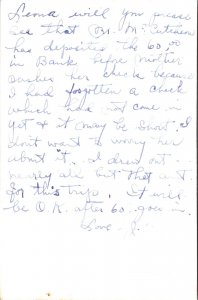 Leona will you please
see that Dr. McCutcheon
has deposited the 60.00
in Bank before mother
cashes her check because
I had forgotten a check
which has not come in
yet & it may be short. I
don't want to worry her
about it. I drew out
nearly all but that out
for this trip. It will
be O.K. after 60 goes in.
Love - J.